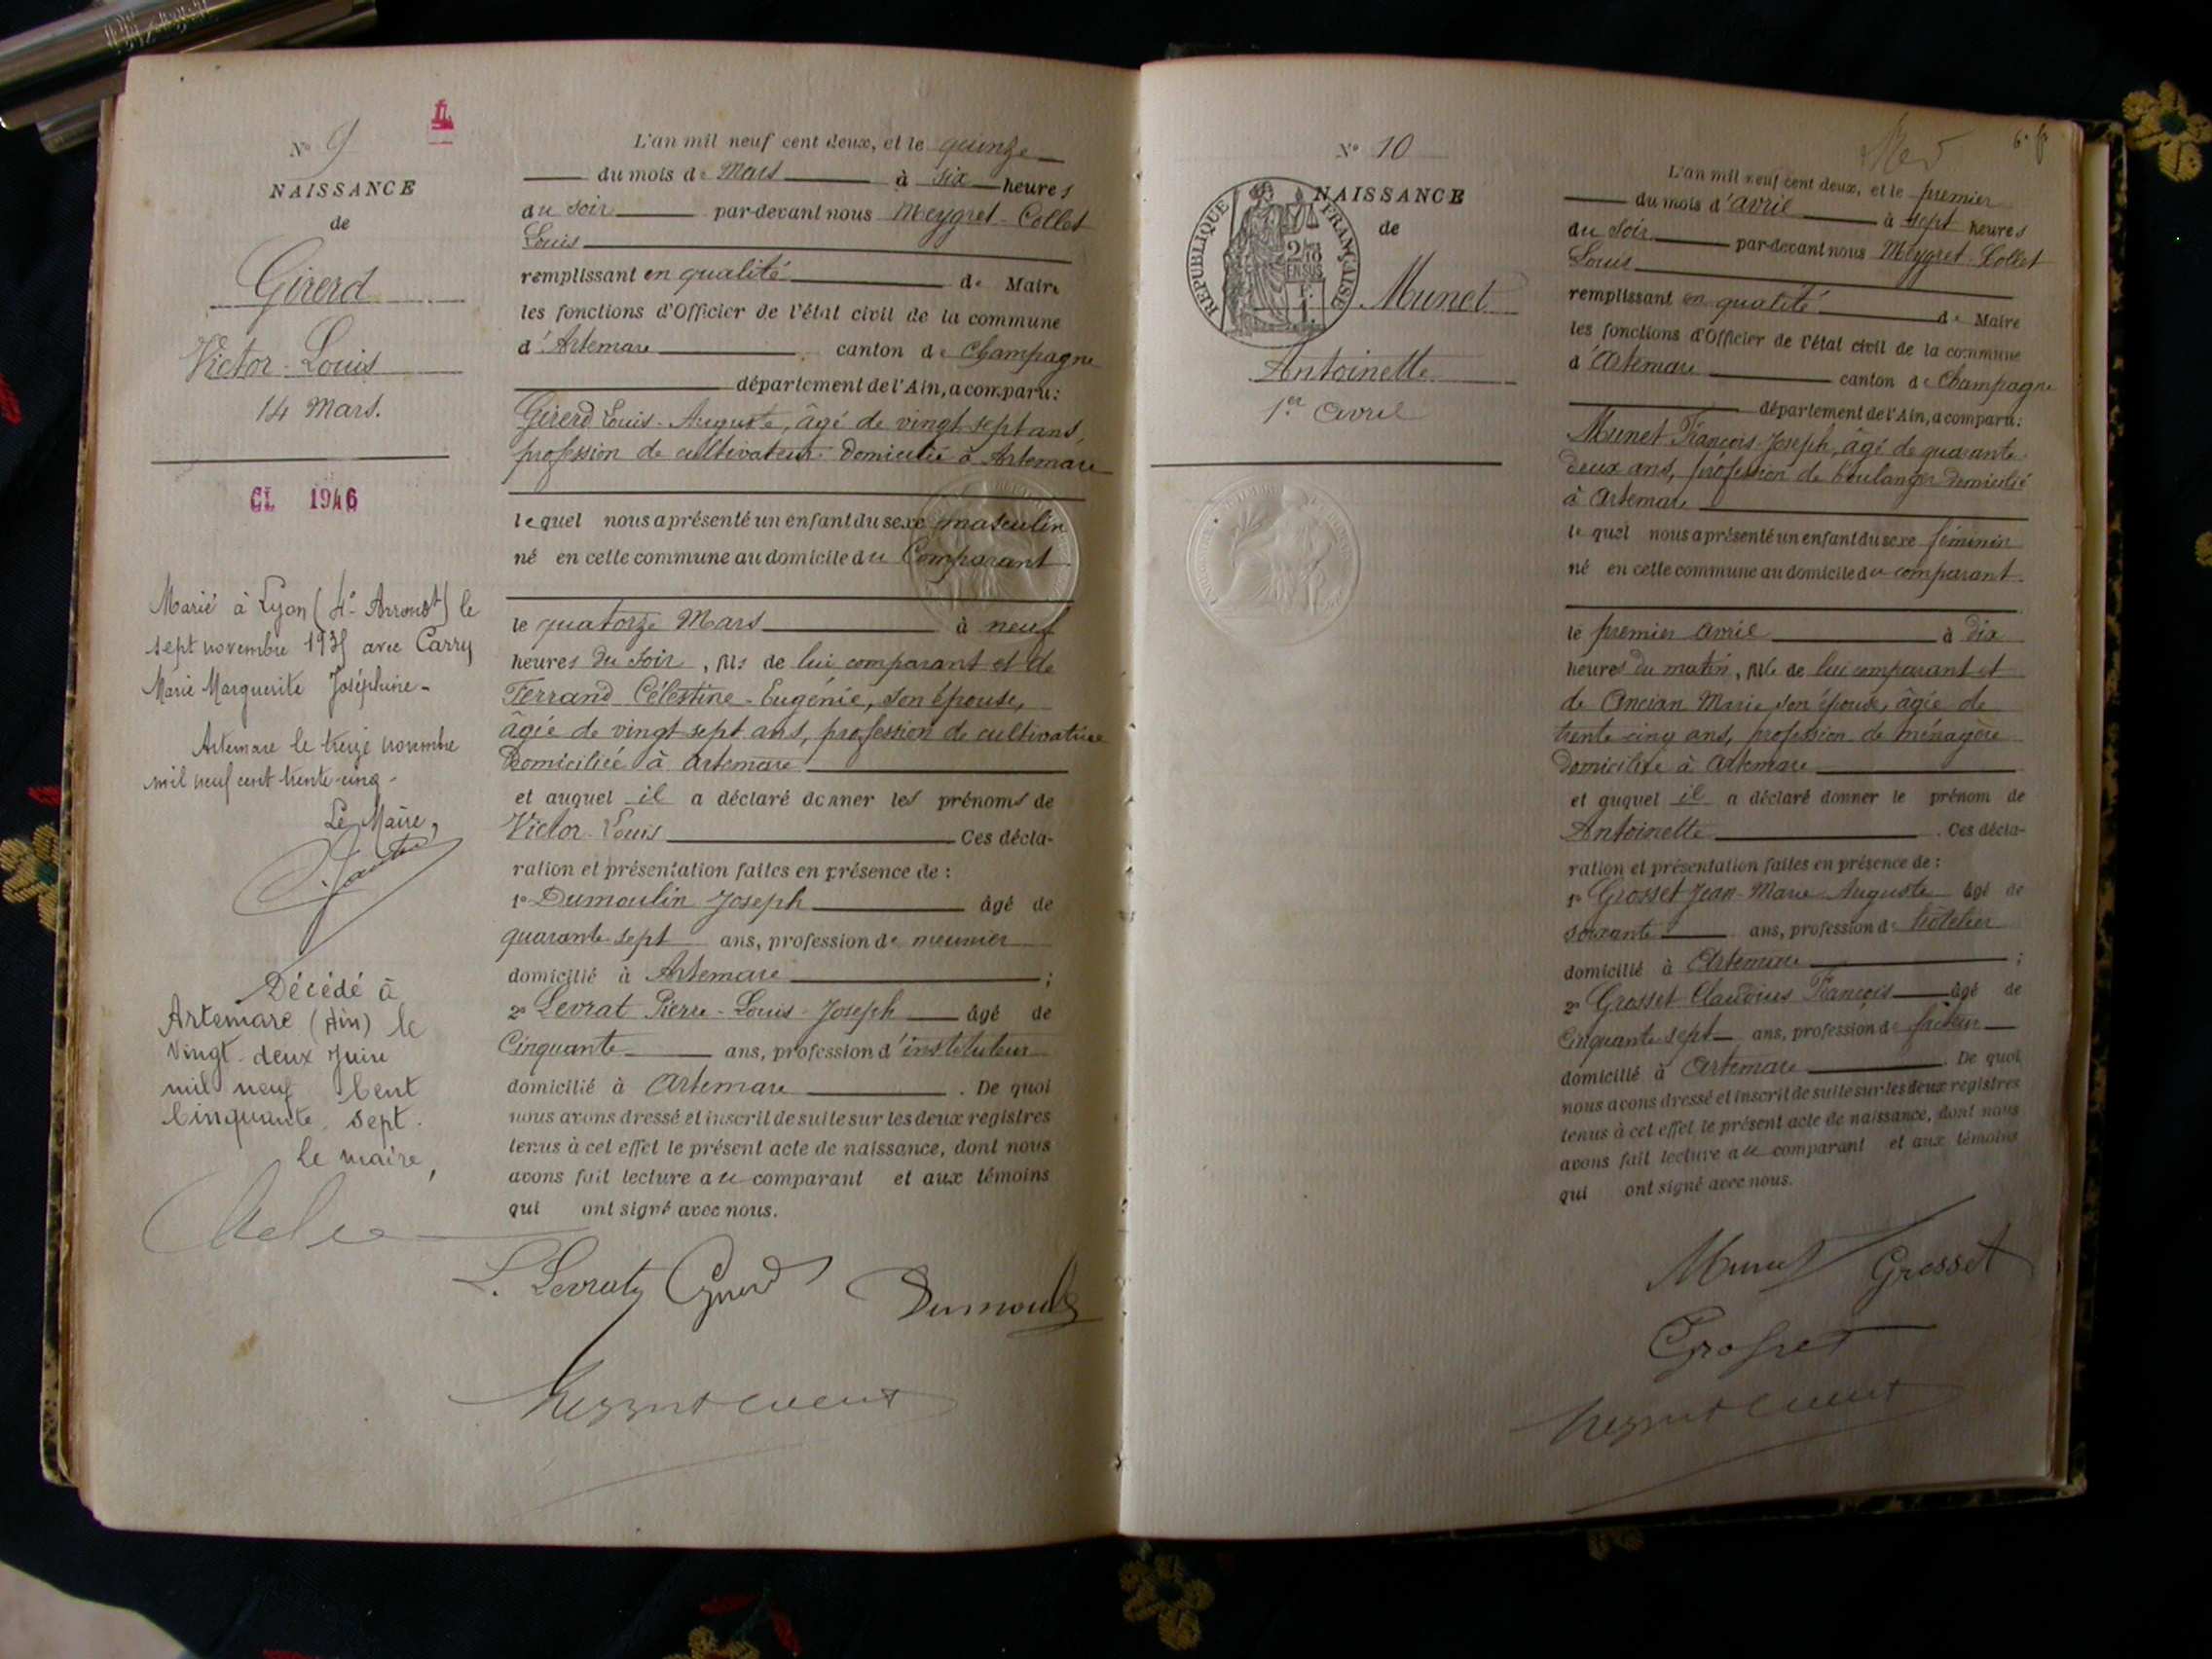 N° 9
NAISSANCE
de
Girerd
Victor-Louis
14 Mars.
CL 1946
Marié à Lyon (4e Arrondt) le
sept novembre 1935 avec Carry
Marie Marguerite Joséphine-
Artemare le treize novembre
mil neuf cent trente-cinq-
Le Maire,
Décédé à
Artemare (Ain) le
Vingt-deux Juin
mil neuf Cent
Cinquante-sept.
le maire,
L'an mil neuf cent deux, et le quinze
du mois de Mars à six heures
du soir par-devant nous Meygret-Collet
Louis
remplissant en qualité de Maire
les fonctions d'Officier de l'état civil de la commune
d'Artemare canton de Champagne
département de l'Ain, a comparu:
Girerd Louis-Auguste, âgé de vingt sept ans,
profession de cultivateur domicilié à Artemare
lequel nous a présenté un enfant du sexe masculin
né en cette commune au domicile du Comparant
le quatorze Mars à neuf
heures du soir, fils de lui comparant et de
Ferrand Célestine-Eugénie, son épouse,
âgée de vingt sept ans, profession de cultivatrice
Domiciliée à Artemare
et auquel il a déclaré donner les prénoms de
Victor-Louis Ces décla-
ration et présentation faites en présence de :
1° Dumoulin Joseph âgé de
quarante-sept ans, profession de meunier
domicilié à Artemare ;
2° Levrat Pierre-Louis-Joseph âgé de
Cinquante ans, profession d'instituteur
domicilié à Artemare . De quoi
nous avons dressé et inscrit de suite sur les deux registres
tenus à cet effet le présent acte de naissance, dont nous
avons fait lecture au comparant et aux témoins
qui ont signé avec nous.
L. Levrat Girerd Dumoulin
N° 10
NAISSANCE
de
REPUBLIQUE FRANÇAISE
2/10 EN SUS
Munet
Antoinette
1er avril
6e f
L'an mil neuf cent deux, et le premier
du mois d'avril à sept heures
du soir par-devant nous Meygret-Collet
Louis
remplissant en qualité de Maire
les fonctions d'Officier de l'état civil de la commune
d'Artemare canton de Champagne
département de l'Ain, a comparu:
Munet François-Joseph, âgé de quarante
deux ans, profession de boulanger domicilié
à Artemare
lequel nous a présenté un enfant du sexe féminin
né en cette commune au domicile du comparant.
le premier avril à dix
heures du matin, fille de lui comparant et
de Ancian Marie son épouse, âgée de
trente cinq ans, profession de ménagère
Domiciliée à Artemare
et auquel il a déclaré donner le prénom de
Antoinette . Ces décla-
ration et présentation faites en présence de :
1° Grosset Jean-Marie-Auguste âgé de
soixante ans, profession d'hôtelier
domicilié à Artemare ;
2° Grosset Claudius François âgé de
Cinquante sept ans, profession de facteur
domicilié à Artemare . De quoi
nous avons dressé et inscrit de suite sur les deux registres
tenus à cet effet le présent acte de naissance, dont nous
avons fait lecture au comparant et aux témoins
qui ont signé avec nous.
Munet Grosset
Grosset